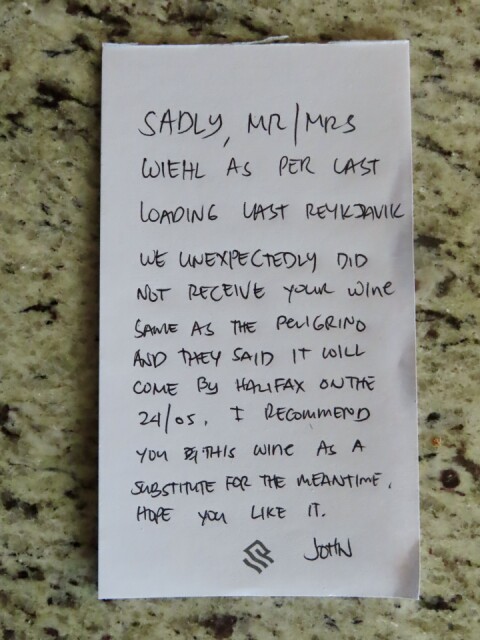 SADLY, MR/MRS
WIEHL AS PER LAST
LOADING LAST REYKJAVIK
WE UNEXPECTEDLY DID
NOT RECEIVE YOUR WINE
SAME AS THE PELIGRINO
AND THEY SAID IT WILL
COME BY HALIFAX ON THE
24/05. I RECOMMEND
YOU THIS WINE AS A
SUBSTITUTE FOR THE MEANTIME.
HOPE YOU LIKE IT.
JOHN